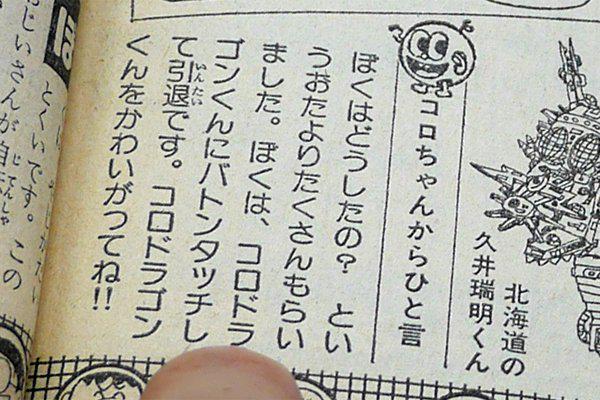 北海道の
久井瑞明くん
コロちゃんからひと言
ぼくはどうしたの？ とい
うおたよりたくさんもらい
ました。ぼくは、コロドラ
ゴンくんにバトンタッチし
て引退です。コロドラゴン
いんたい
くんをかわいがってね!!
とくいです。この